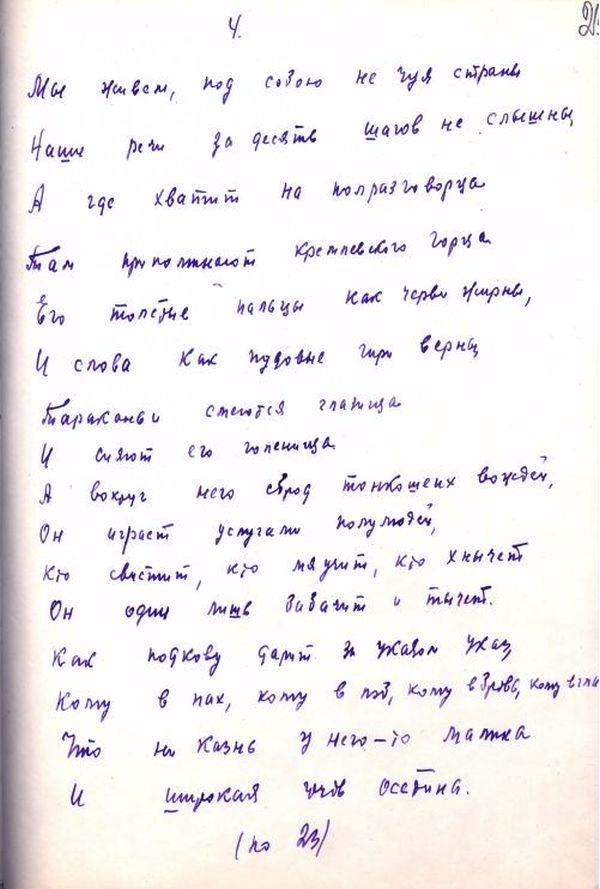 4.
Мы живем, под собою не чуя страны
Наши речи за десять шагов не слышны,
А где хватит на полразговорца
Там припоминают кремлевского горца.
Его толстые пальцы как черви жирны,
И слова как пудовые гири верны
Тараканьи смеются глазища
И сияют его голенища
А вокруг него сброд тонкошеих вождей,
Он играет услугами полулюдей,
Кто свистит, кто мяучит, кто хнычет
Он один лишь бабачит и тычет.
Как подкову дарит за указом указ
Кому в пах, кому в лоб, кому в бровь, кому в гла
Что ни казнь у него-то малина
И широкая грудь осетина.
(по 23)